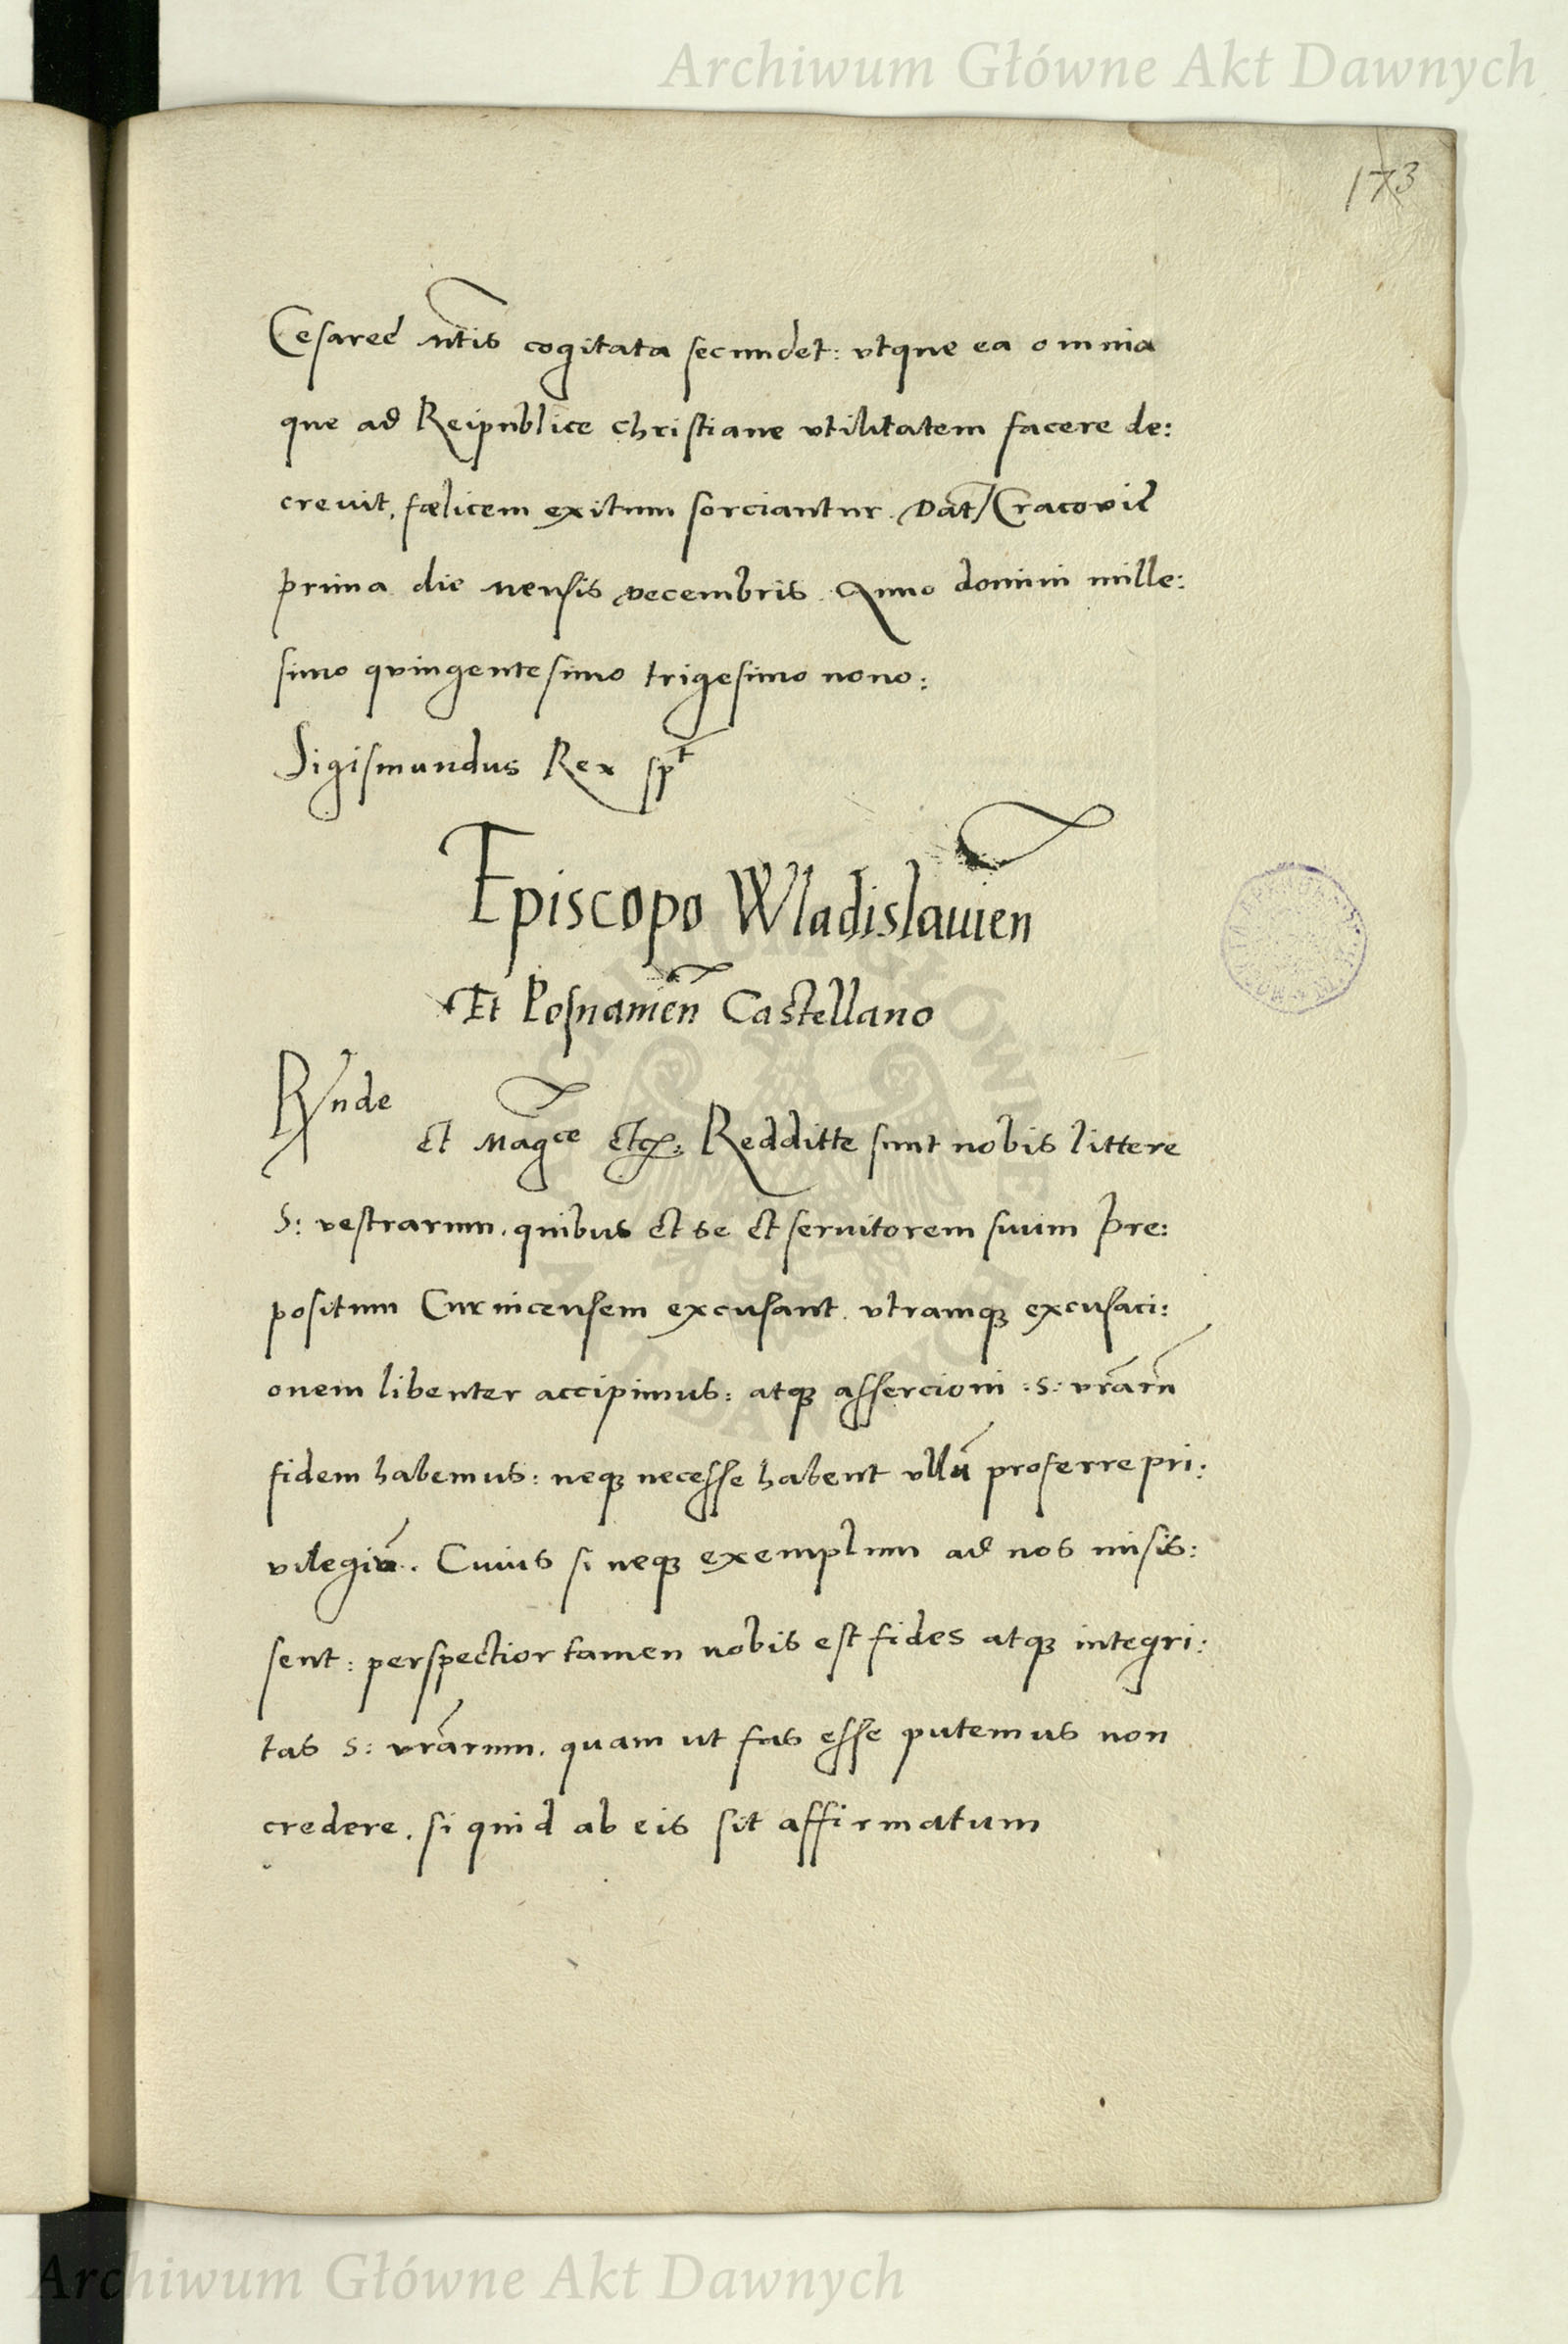 Archiwum Główne Akt Dawnych
173
Cesaree Mtis cogitata secundet: vtque ea omnia
que ad Reipublice christiane vtilitatem facere de:
crevit, fœlicem exitum sorciantur. Dat Cracovie
prima die Mensis Decembris. Anno domini mille:
simo quingentesimo trigesimo nono:
Sigismundus Rex spt
Episcopo Wladislauien
Et Posnanien Castellano
Rnde
et Magce etc. Redditte sunt nobis littere
S: vestrarum, quibus et se et seruitorem suum Pre:
positum Curnicensem excusant, vtramque excusaci:
onem libenter accipimus: atque assercioni :S: vrarum
fidem habemus: neque necesse habent vllu proferre pri:
vilegiu. Cuius si neque exemplum ad nos misis:
sent: perspectior tamen nobis est fides atque integri:
tas S: vrarum, quam ut fas esse putemus non
credere, si quid ab eis sit affirmatum
Archiwum Główne Akt Dawnych